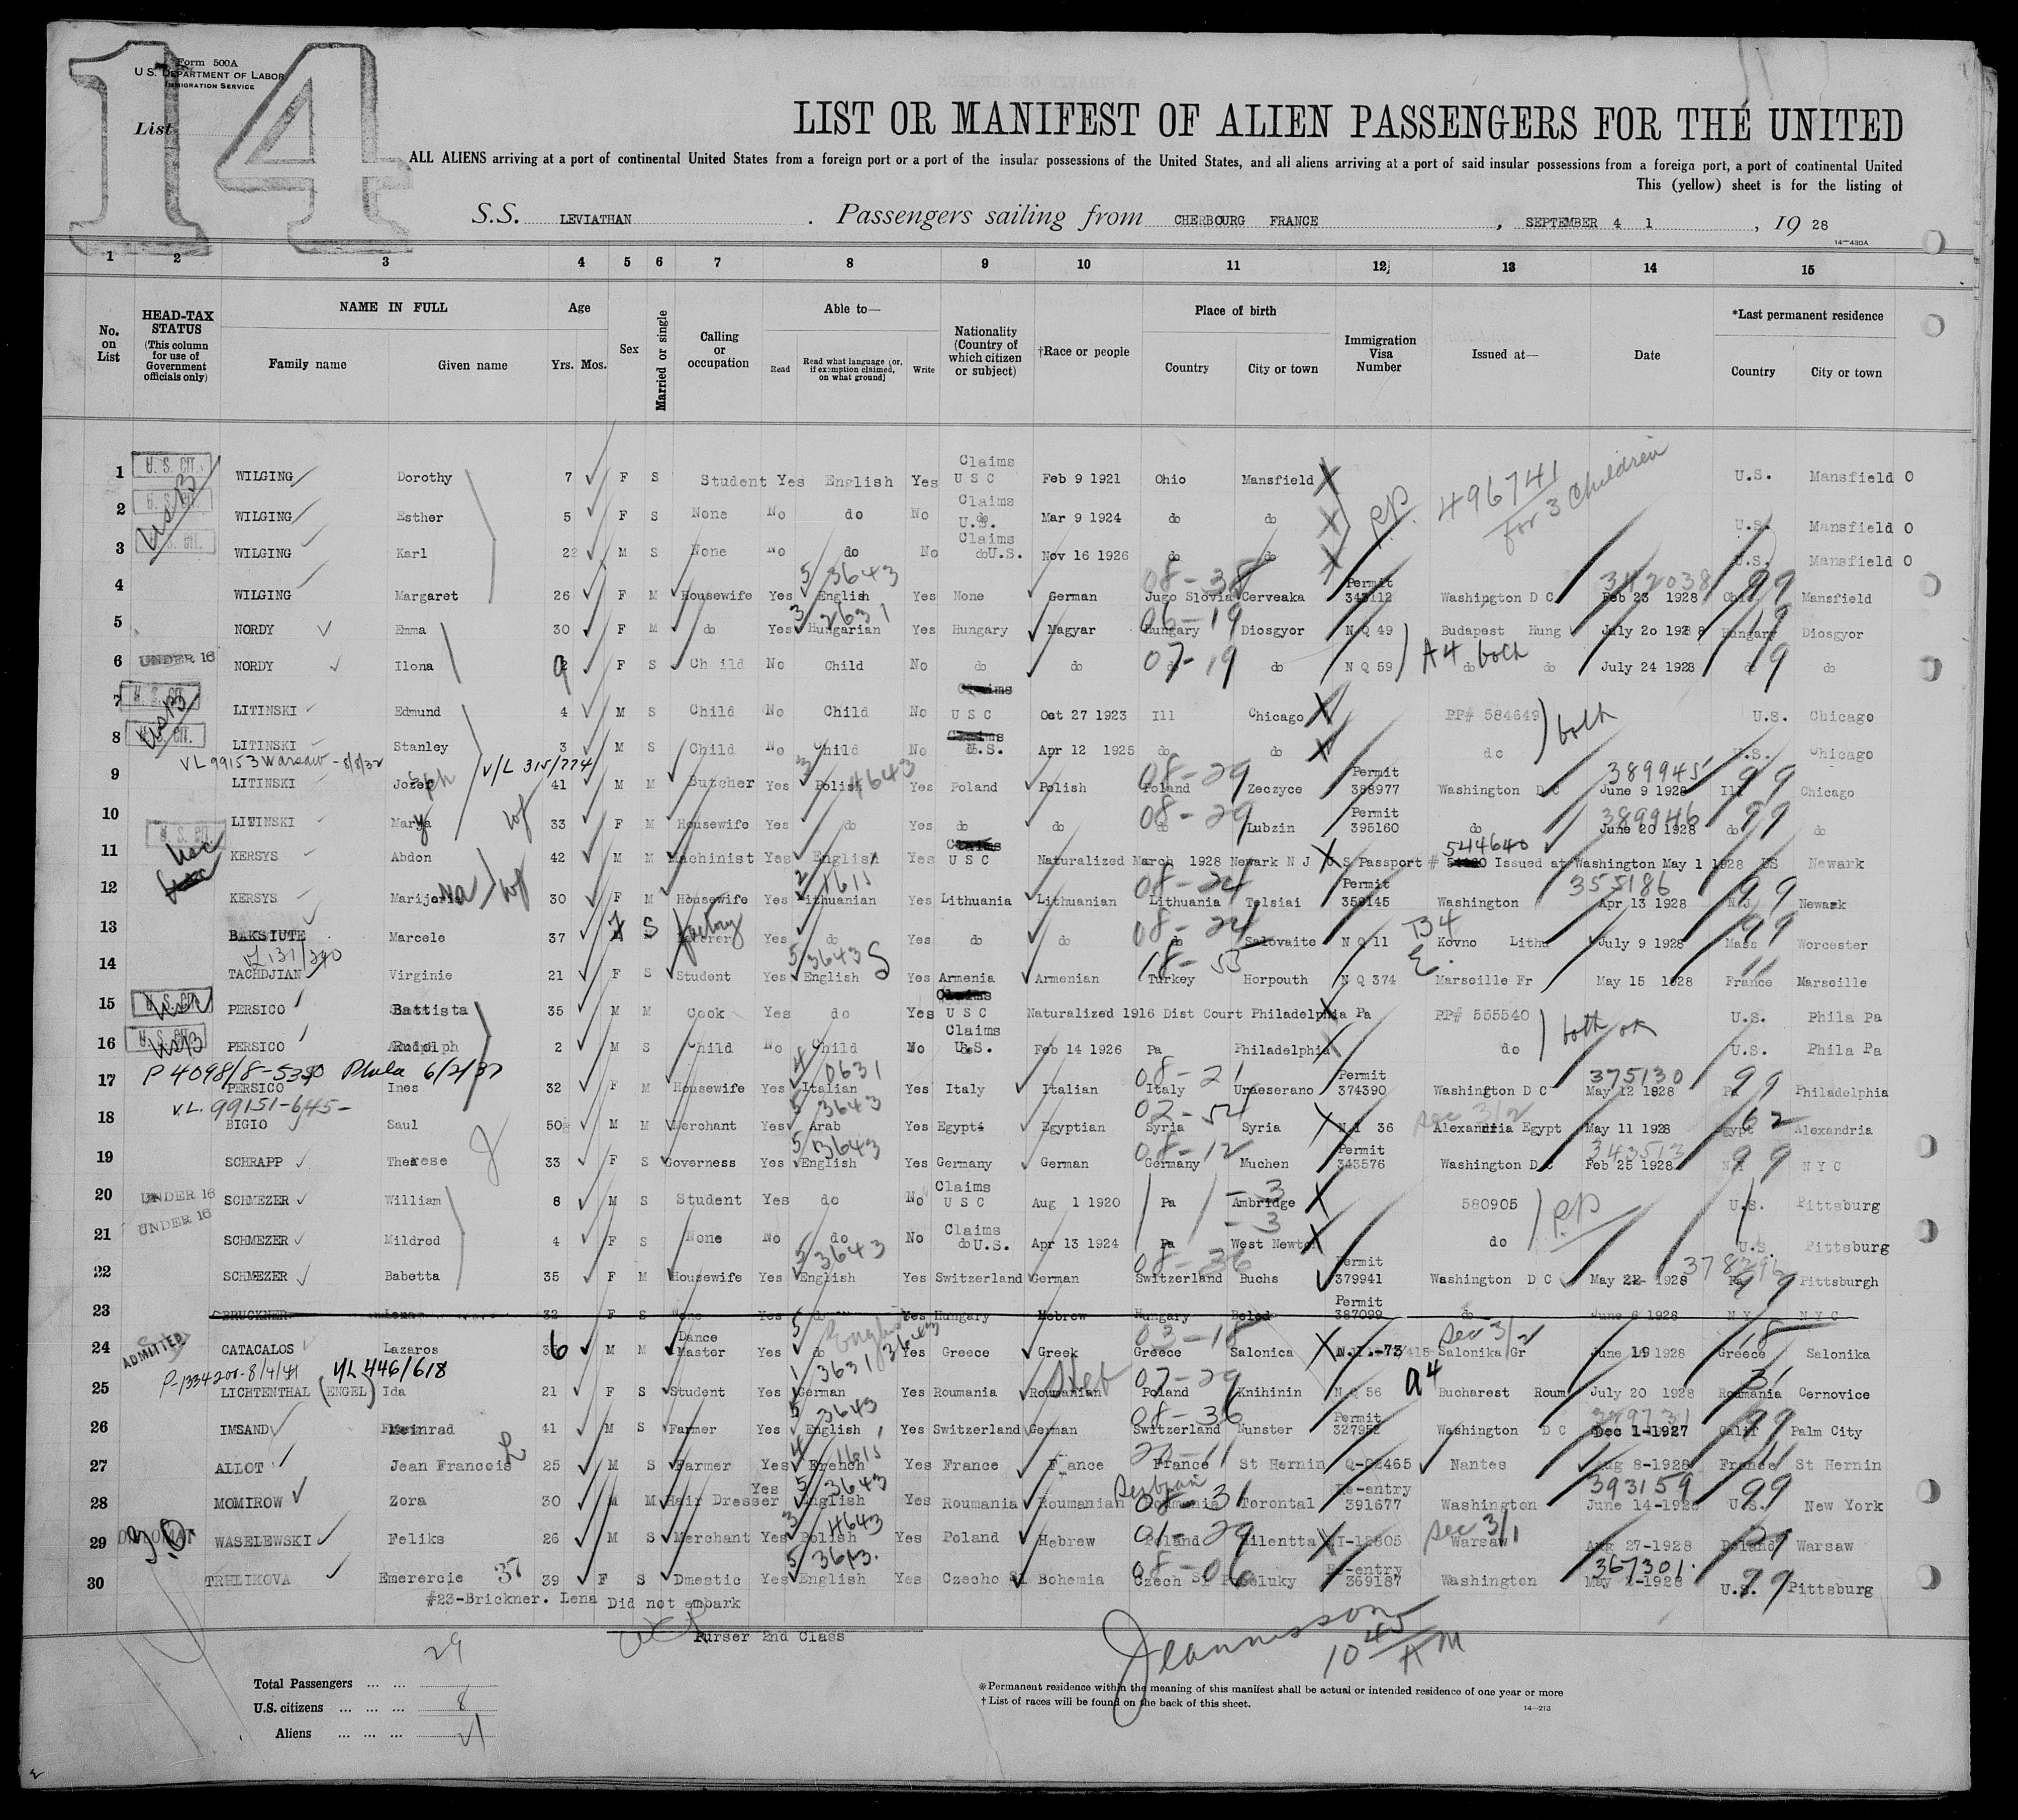 14
Form 500A
U.S. DEPARTMENT OF LABOR
IMMIGRATION SERVICE
List
LIST OR MANIFEST OF ALIEN PASSENGERS FOR THE UNITED
ALL ALIENS arriving at a port of continental United States from a foreign port or a port of the insular possessions of the United States, and all aliens arriving at a port of said insular possessions from a foreign port, a port of continental United
This (yellow) sheet is for the listing of
S.S. LEVIATHAN . Passengers sailing from CHERBOURG FRANCE , SEPTEMBER 4 1 , 19 28
14—430A
1 2 3 4 5 6 7 8 9 10 11 12 13 14 15
No. on List
HEAD-TAX STATUS (This column for use of Government officials only)
NAME IN FULL Family name Given name
Age Yrs. Mos.
Sex
Married or single
Calling or occupation
Able to— Read Read what language (or, if exemption claimed, on what ground) Write
Nationality (Country of which citizen or subject)
†Race or people
Place of birth Country City or town
Immigration Visa Number
Issued at—
Date
*Last permanent residence Country City or town
1 U. S. CIT. WILGING Dorothy 7 F S Student Yes English Yes Claims U S C Feb 9 1921 Ohio Mansfield PP. 496741 for 3 Children U.S. Mansfield O
2 U. S. CIT. WILGING Esther 5 F S None No do No Claims U.S. Mar 9 1924 do do U.S. Mansfield O
3 U. S. CIT. WILGING Karl 2 M S None No do No Claims do U.S. Nov 16 1926 do do U.S. Mansfield O
4 WILGING Margaret 26 F M Housewife Yes 5/3643 English Yes None German 08-38 Jugo Slovia Cerveaka Permit 343112 Washington D C 342038 Feb 23 1928 Ohio 99 Mansfield
5 NORDY Emma 30 F M do Yes 3/2631 Hungarian Yes Hungary Magyar 06-19 Hungary Diosgyor N Q 49 Budapest Hung July 20 1928 Hungary 19 Diosgyor
6 UNDER 16 NORDY Ilona 9 F S Child No Child No do do 07-19 do N Q 59 A4 both do do July 24 1928 do do
7 U. S. CIT. LITINSKI Edmund 4 M S Child No Child No U S C Oct 27 1923 Ill Chicago PP# 584649 both U.S. Chicago
8 U. S. CIT. LITINSKI Stanley 3 M S Child No Child No U.S. Apr 12 1925 do do do U.S. Chicago
VL 99153 Warsaw - 8/8/32 V/L 315/774
9 LITINSKI Jozeph 41 M M Butcher Yes Polish 4643 Yes Poland Polish 08-29 Poland Zeczyce Permit 388977 Washington D C 389945 June 9 1928 Ill 99 Chicago
10 LITINSKI Marya wf 33 F M Housewife Yes do Yes do do 08-29 do Lubzin Permit 395160 do 389946 June 20 1928 do 99 do
11 U. S. CIT. usc KERSYS Abdon 42 M M Machinist Yes English Yes U S C Naturalized March 1928 Newark N J U S Passport # 544640 Issued at Washington May 1 1928 US Newark
12 KERSYS Marijona wf 30 F M Housewife Yes Lithuanian Yes Lithuania Lithuanian 08-24 Lithuania Telsiai Permit 359145 Washington 355186 Apr 13 1928 N J 99 Newark
13 BAKSIUTE Marcele 37 F S factory Yes do Yes do do 08-24 do Salovaite N Q 11 B4 Kovno Lithu July 9 1928 Mass 99 Worcester
14 TACHDJIAN Virginie 21 F S Student Yes 5/3643 English Yes Armenia Armenian 18-53 Turkey Horpouth N Q 374 Marseille Fr May 15 1928 France 11 Marseille
15 U. S. CIT. PERSICO Battista 35 M M Cook Yes do Yes U S C Naturalized 1916 Dist Court Philadelphia Pa PP# 555540 both ok U.S. Phila Pa
16 U. S. CIT. PERSICO Rudolph 2 M S Child No Child No Claims U.S. Feb 14 1926 Pa Philadelphia do U.S. Phila Pa
P 4098/8-5350 Phila 6/2/37
17 PERSICO Ines 32 F M Housewife Yes 0631 Italian Yes Italy Italian 08-21 Italy Uraeserano Permit 374390 Washington D C 375130 May 12 1928 Pa 99 Philadelphia
V.L. 99151-645-
18 BIGIO Saul 50 M M Merchant Yes 5/3643 Arab Yes Egypt Egyptian 02-52 Syria Syria N I 36 sec 3/2 Alexandria Egypt May 11 1928 Egypt 62 Alexandria
19 SCHRAPP Therese 33 F S Governess Yes 5/3643 English Yes Germany German 08-12 Germany Muchen Permit 343576 Washington D C 343513 Feb 25 1928 N Y 99 N Y C
20 UNDER 16 SCHMEZER William 8 M S Student Yes do No Claims U S C Aug 1 1920 Pa -3 Ambridge 580905 PP U.S. Pittsburg
21 UNDER 16 SCHMEZER Mildred 4 F S None No do No Claims do U.S. Apr 13 1924 Pa -3 West Newton do U.S. Pittsburg
22 SCHMEZER Babetta 35 F M Housewife Yes 5/3643 English Yes Switzerland German 08-36 Switzerland Buchs Permit 379941 Washington D C May 22 1928 Pa 99 Pittsburgh
23 BRUCKNER Lena 32 F S None Yes do Yes Hungary Hebrew Hungary Beled Permit 387099 do June 6 1928 N Y N Y C
24 ADMITTED CATACALOS Lazaros 36 M M Dance Master Yes English 3643 Yes Greece Greek 03-18 Greece Salonica N.I.-73/415 sec 3/2 Salonika Gr June 19 1928 Greece 18 Salonika
P-1334200-8/4/41 V/L 446/618
25 LICHTENTHAL (ENGEL) Ida 21 F S Student Yes 1/3631 German Yes Roumania Roumanian Heb 07-29 Poland Knihinin N Q 56 a4 Bucharest Roum July 20 1928 Roumania 31 Cernovice
26 IMSAND Meinrad 41 M S Farmer Yes 5/3643 English Yes Switzerland German 08-36 Switzerland Nunster Permit 327952 Washington D C Dec 1-1927 Calif 99 Palm City
27 ALLOT Jean Francois 25 M S Farmer Yes French Yes France France France St Hernin Q-05465 Nantes Aug 8-1928 France 11 St Hernin
28 MOMIROW Zora 30 M M Hair Dresser Yes 5/3643 English Yes Roumania Roumanian Serbian 08-31 Roumania Torontal Re-entry 391677 Washington 393159 June 14-1928 U.S. 99 New York
29 WASELEWSKI Feliks 26 M S Merchant Yes 3/4643 Polish Yes Poland Hebrew 01-29 Poland Milentta I-12805 sec 3/1 Warsaw Aug 27-1928 Poland 29 Warsaw
30 TRHLIKOVA Emerercie 37 39 F S Dmestic Yes English Yes Czecho Sl Bohemia 08-06 Czech Sl Re-entry 369187 Washington 367301. May 1-1928 U.S. 99 Pittsburg
#23-Brickner. Lena Did not embark
Purser 2nd Class
10 45 AM
Total Passengers ... ... 29
U.S. citizens ... ... ... 8
Aliens ... ... ... 21
*Permanent residence within the meaning of this manifest shall be actual or intended residence of one year or more
†List of races will be found on the back of this sheet.
14—213